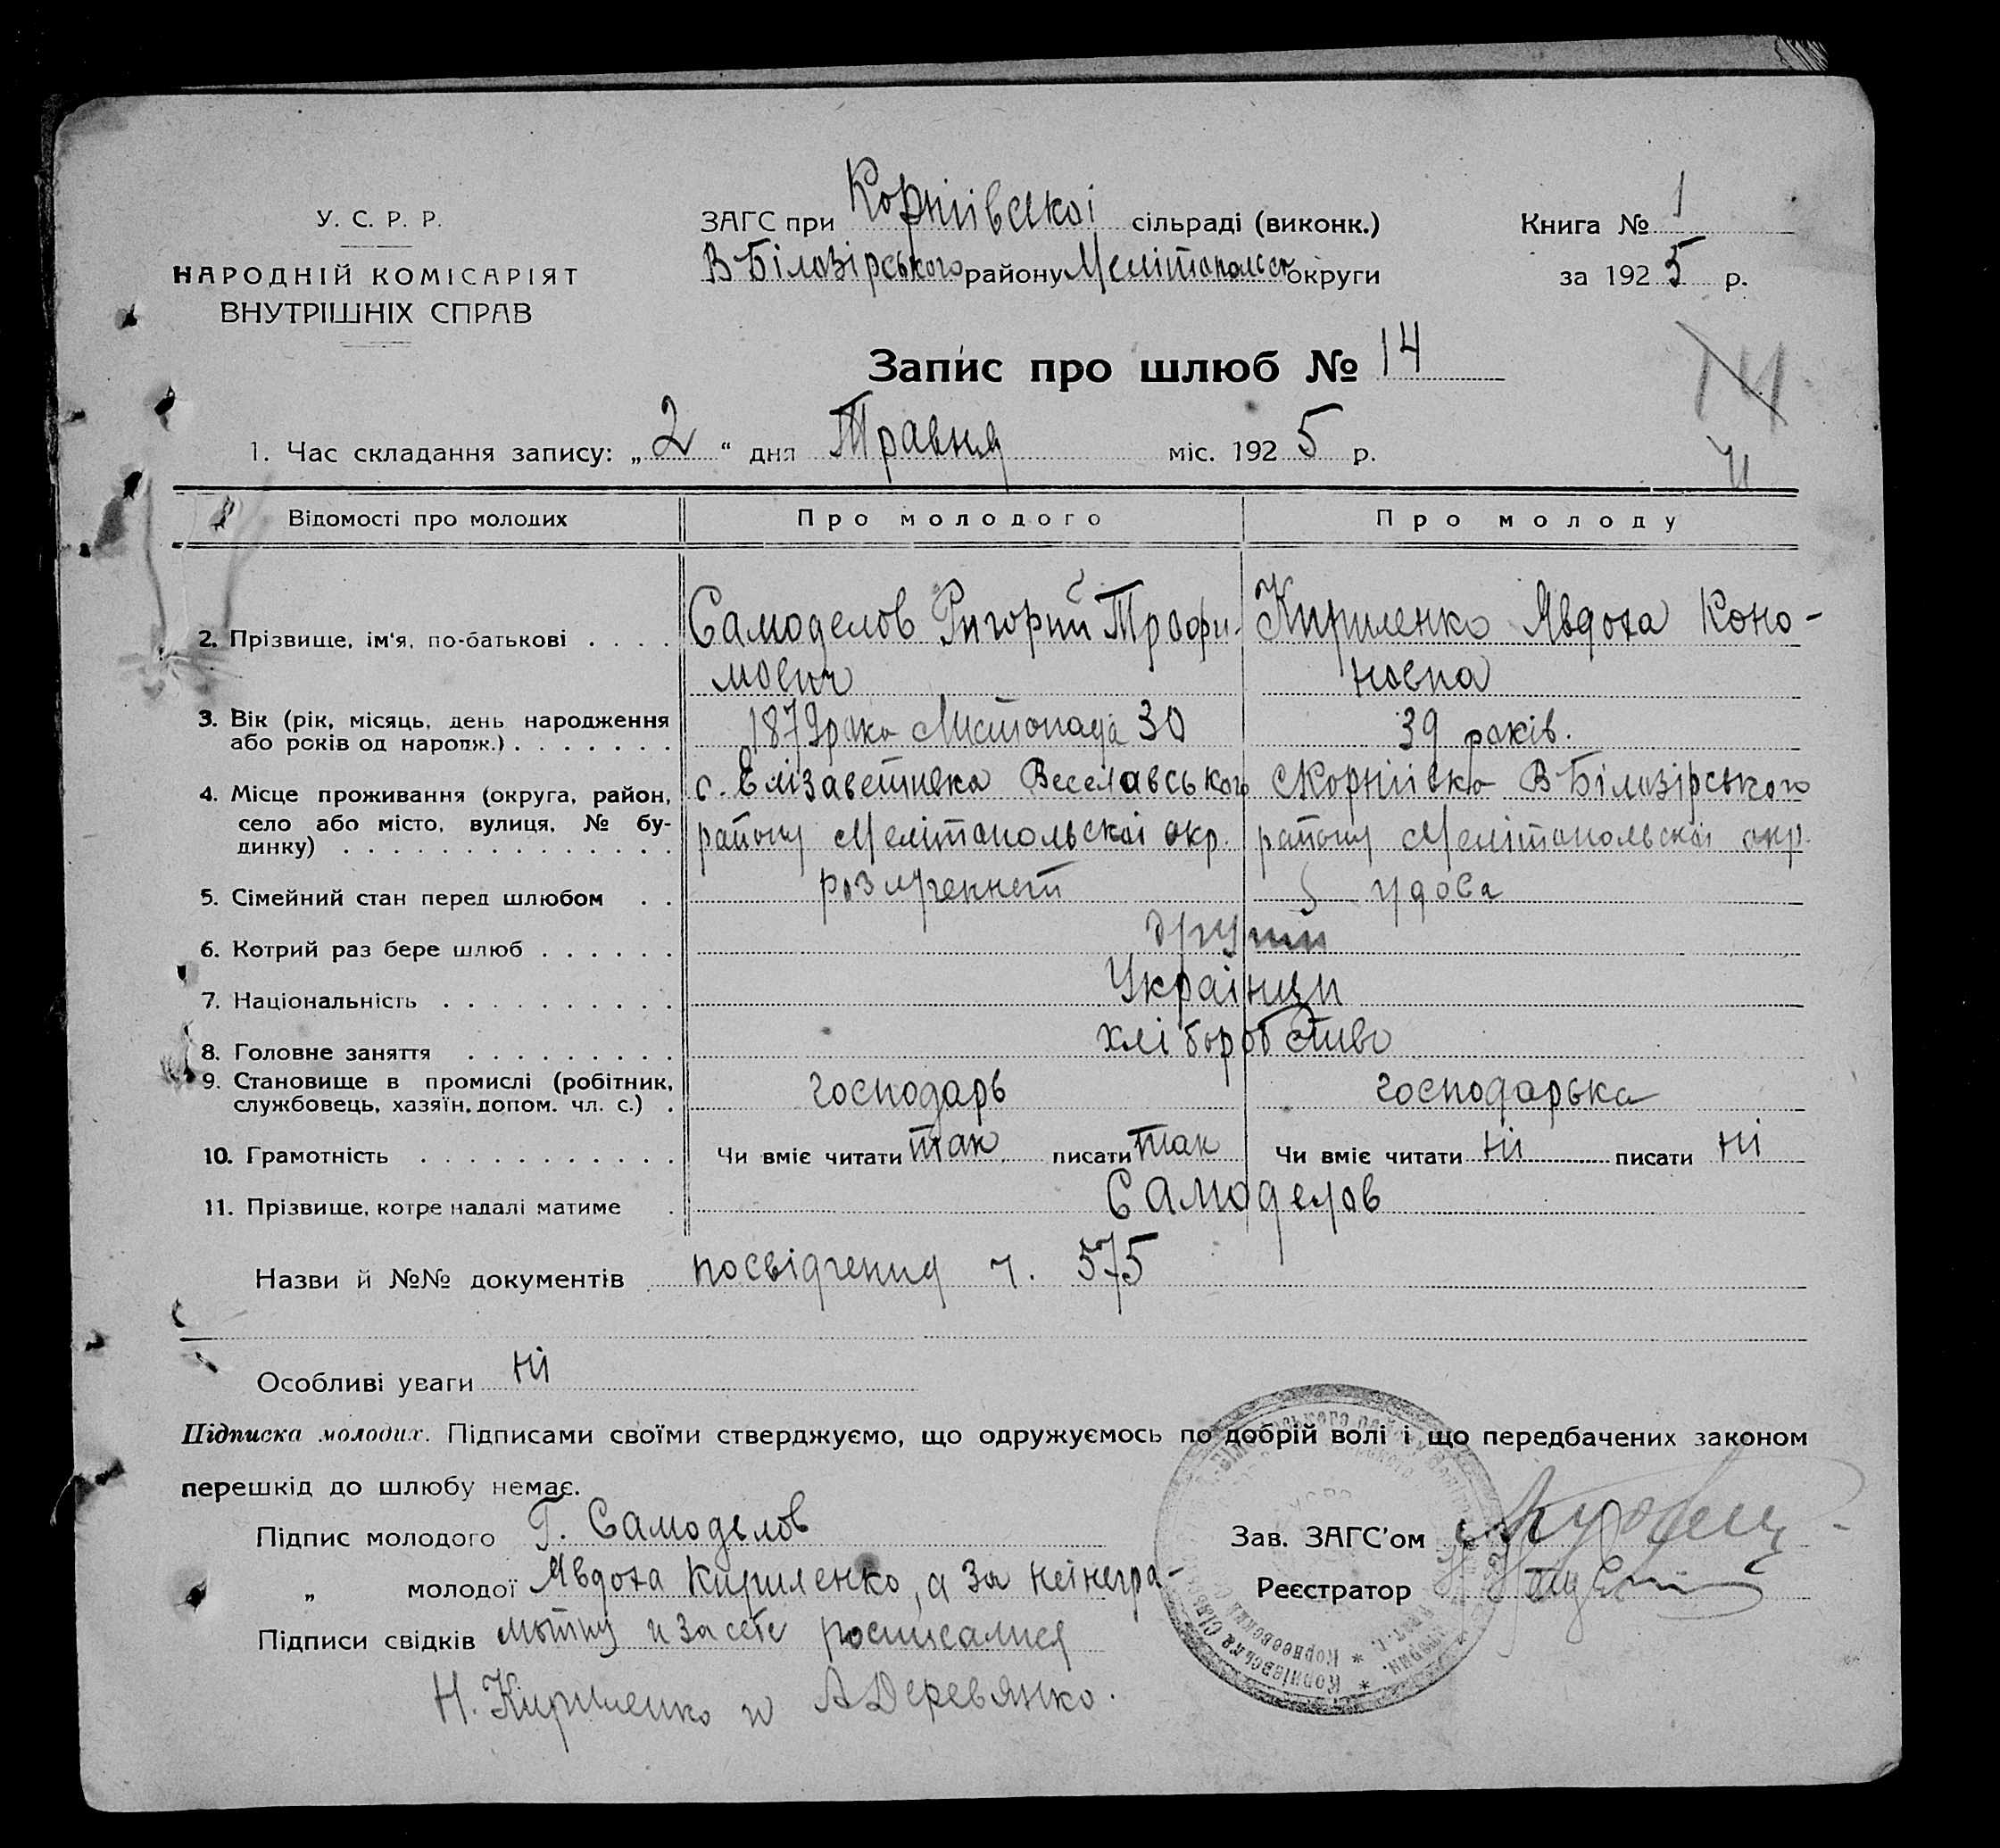 У. С. Р. Р.
НАРОДНІЙ КОМІСАРІЯТ
ВНУТРІШНІХ СПРАВ
ЗАГС при Корніївскоі сільраді (виконк.)
В Білозірського району Мелітопольск округи
Книга № 1
за 1925 р.
Запис про шлюб № 14
14
1. Час складання запису: „2“ дня Травня міс. 1925 р.
Відомості про молодих Про молодого Про молоду
2. Прізвище, ім'я, по-батькові . . . . Самоделов Ригорий Трофи- Кириленко Явдоха Коно-
мович новна
3. Вік (рік, місяць, день народження
або років од народж.) . . . . . . . 1879 року Листопада 30 39 років.
4. Місце проживання (округа, район, с. Елізаветивка Веселавського с Корніївко В Білозірського
село або місто, вулиця, № бу-
динку) . . . . . . . . . . . . . . району Мелітопольскоі окр. району Мелітопольскоі окр.
5. Сімейний стан перед шлюбом . . розлученнет удова
6. Котрий раз бере шлюб . . . . . . другий
7. Національність . . . . . . . . . . Українци
8. Головне заняття . . . . . . . . . хліборобство
9. Становище в промислі (робітник,
службовець, хазяїн, допом. чл. с.) . господарь господарька
10. Грамотність . . . . . . . . . . . Чи вміє читати так писати так Чи вміє читати ні писати ні
11. Прізвище, котре надалі матиме . Самоделов
Назви й №№ документів посвідчения ч. 575
Особливі уваги ні
Підписка молодих. Підписами своїми стверджуємо, що одружуємось по добрій волі і що передбачених законом
перешкід до шлюбу немає.
Підпис молодого Г. Самоделов
„ молодої Явдоха Кириленко, а за неі негра-
Підписи свідків мотну и за себе росписалися
Н. Кириленко и А Деревянко.
Зав. ЗАГС'ом
Реєстратор